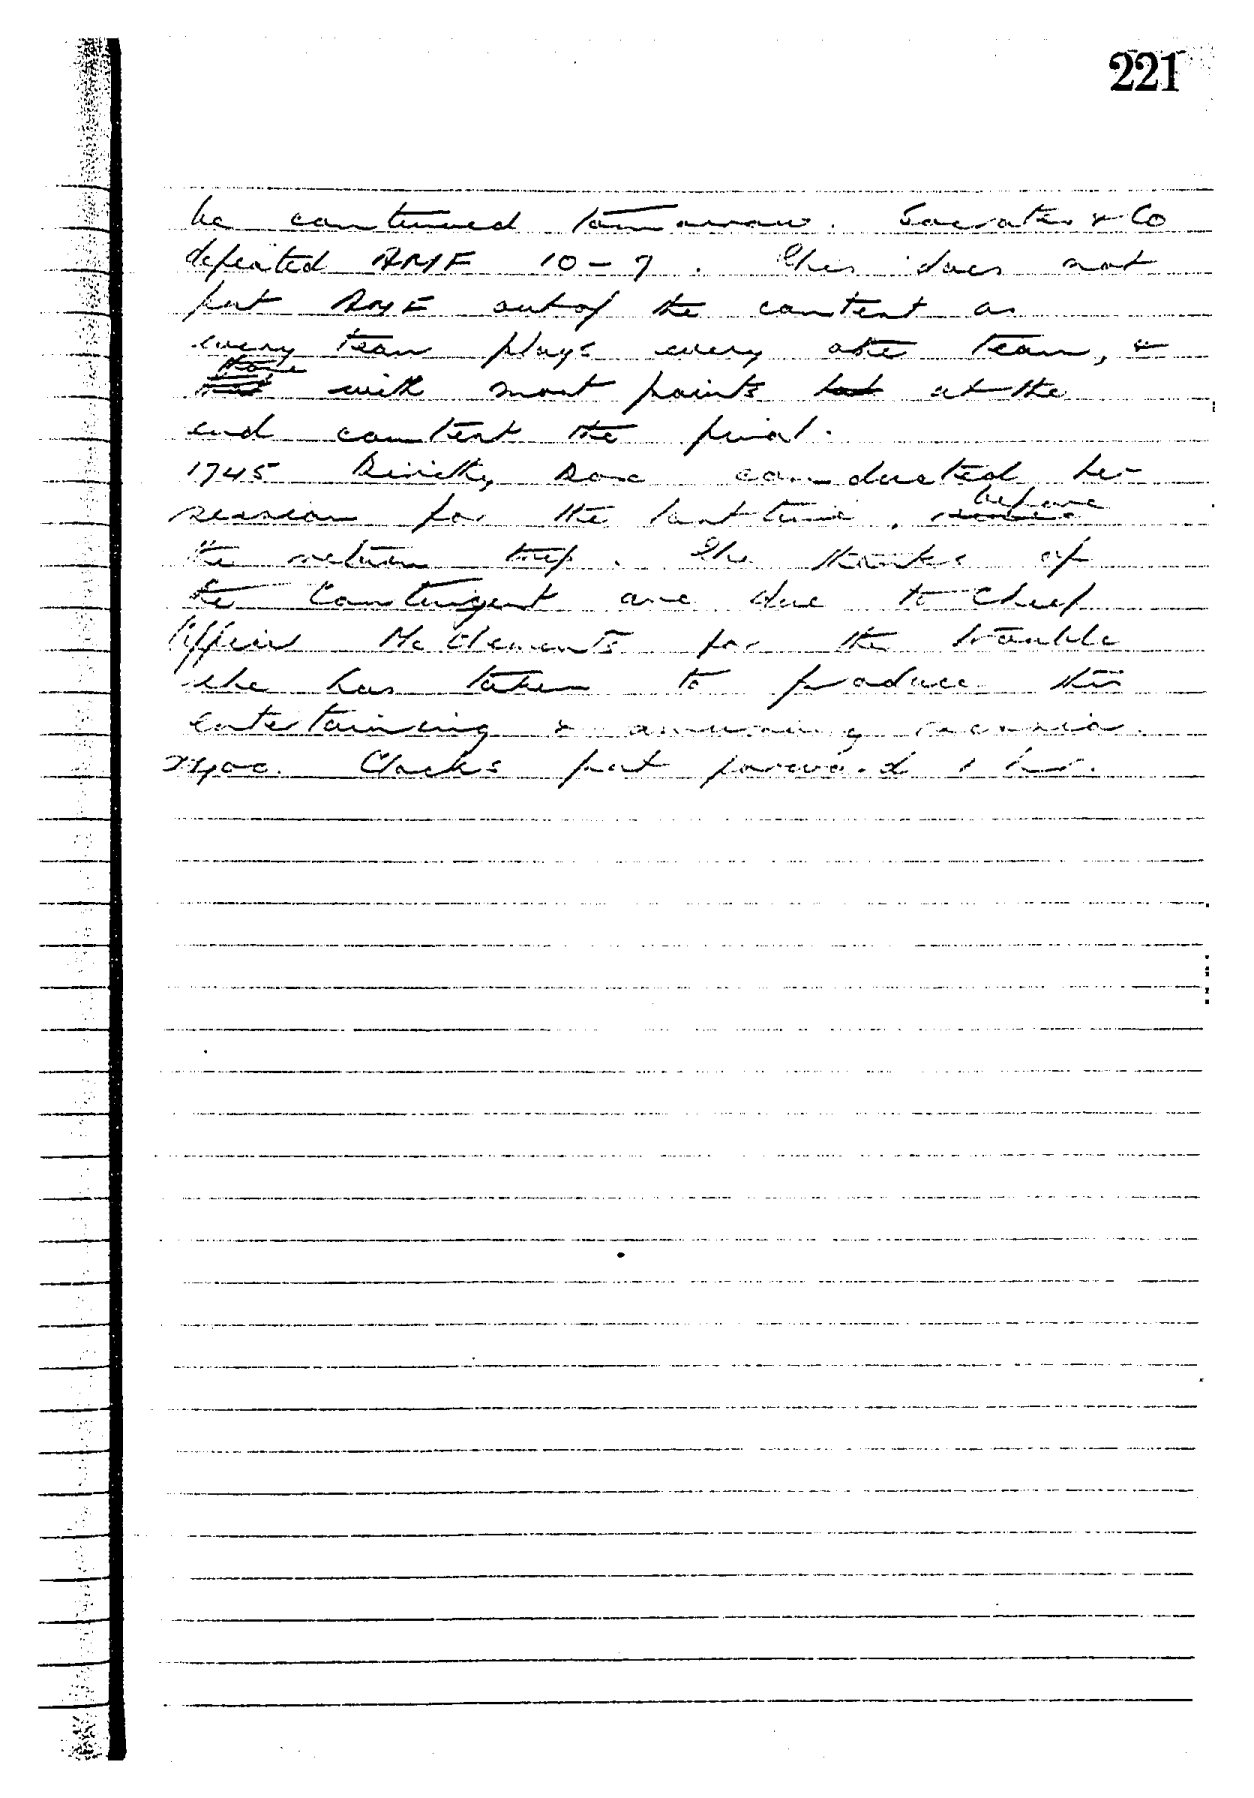 221
be continued tomorrow. Socrates & Co
defeated AMF 10 - 7. This does not
put AMF out of the contest as
every team plays every othe team, &
those with most points at the
end contest the final.
1745 Dorothy Dox conducted her
session for the last time, before
the return trip. The thanks of
the Contingent are due to Chief
Officer McClements for the trouble
she has taken to produce this
entertaining & amusing session.
2400. Clocks put forward 1 hr.